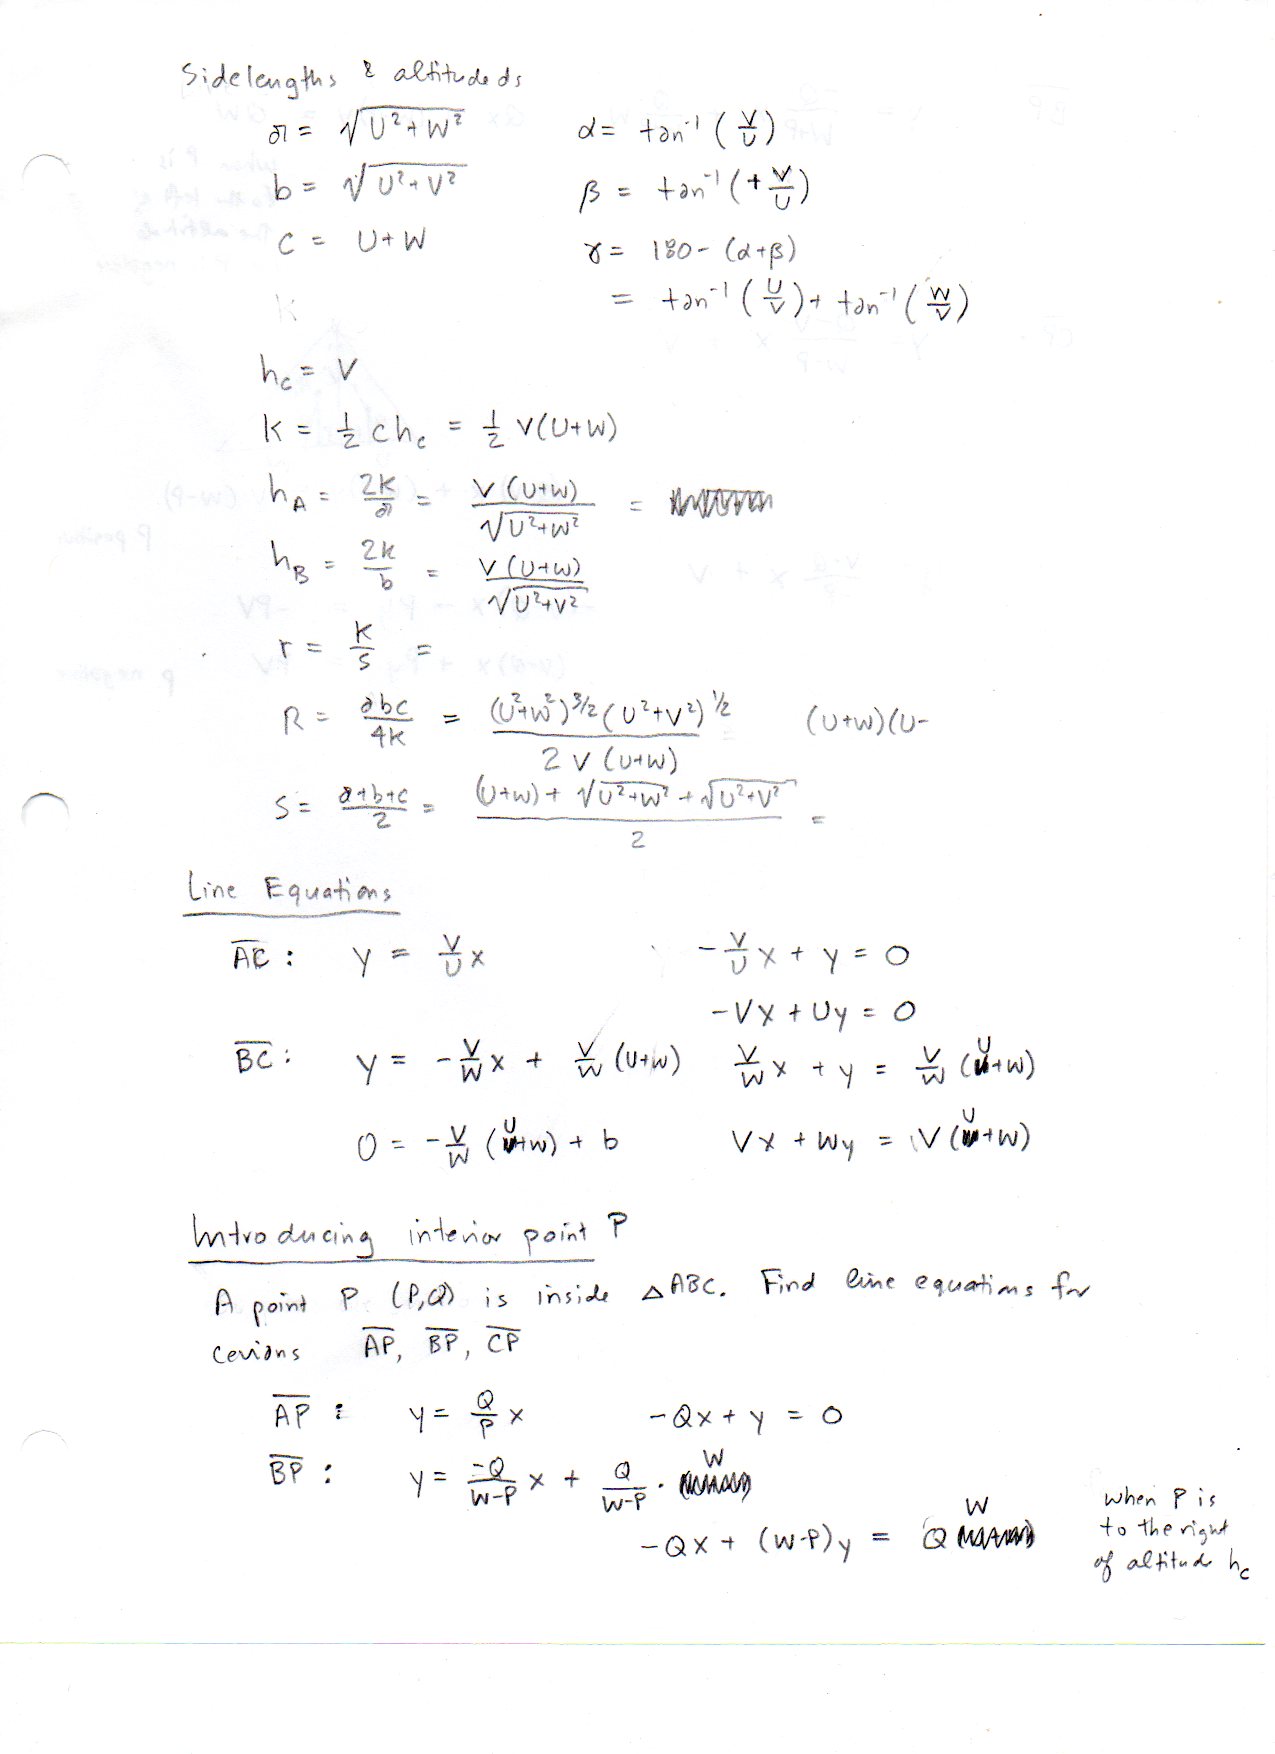 Sidelengths & altitudeds
a = √(U²+W²)    α = tan⁻¹(V/U)
b = √(U²+V²)    β = tan⁻¹(+V/U)
c = U+W    γ = 180-(α+β)
= tan⁻¹(U/V) + tan⁻¹(W/V)
h_c = V
K = 1/2 ch_c = 1/2 V(U+W)
h_A = 2K/a = V(U+W)/√(U²+W²) =
h_B = 2K/b = V(U+W)/√(U²+V²)
r = K/S =
R = abc/4K = (U²+W²)^3/2 (U²+V²)^1/2 / 2V(U+W) =    (U+W)(U-
S = a+b+c/2 = (U+W) + √(U²+W²) + √(U²+V²) / 2 =
Line Equations
AC : y = V/U x    -V/U x + y = 0
-Vx + Uy = 0
BC : y = -V/W x + V/W (U+W)    V/W x + y = V/W (U+W)
0 = -V/W (U+W) + b    Vx + Wy = V(U+W)
Introducing interior point P
A point P (P,Q) is inside △ABC. Find line equations for
cevians AP, BP, CP
AP : y = Q/P x    -Qx + y = 0
BP : y = -Q/W-P x + Q/W-P · W
-Qx + (W-P)y = Q W
when P is
to the right
of altitude h_c